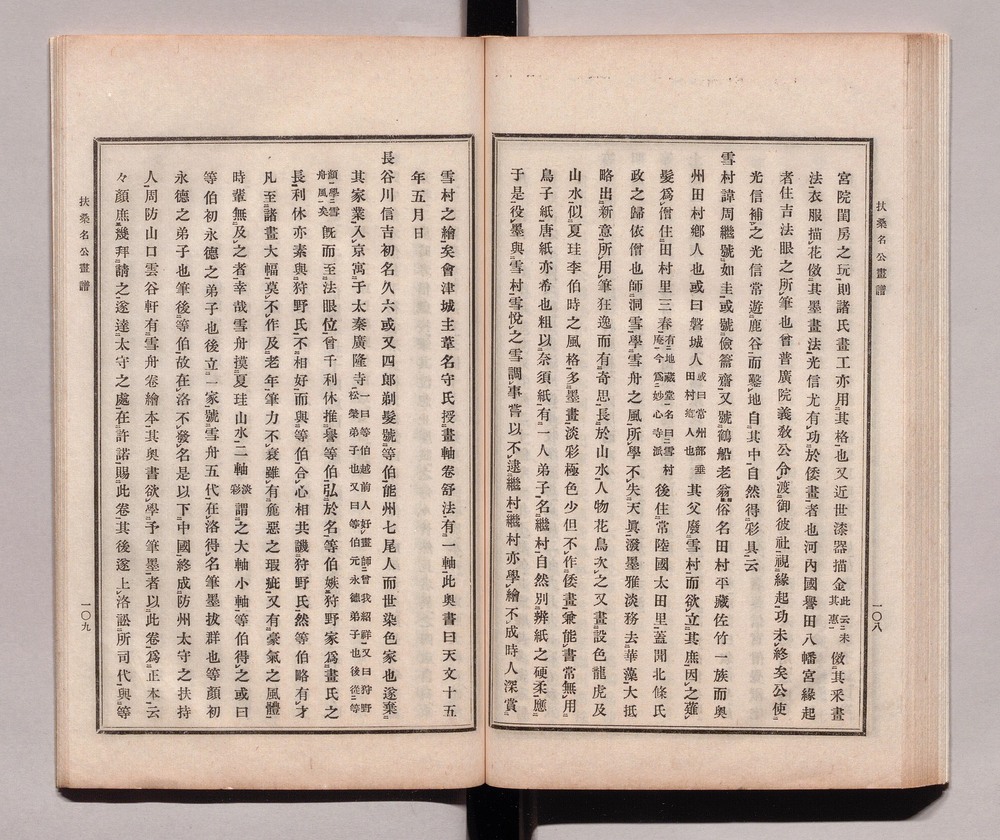 扶桑名公畫譜
一〇八
宮院閨房之玩則諸氏畫工亦用其格也又近世漆器描金此云未其惠倣其釆畫
法衣服描花倣其墨畫法光信尤有功於倭畫者也河內國譽田八幡宮緣起
者住吉法眼之所筆也曾普廣院義敎公令渡御彼社視緣起功未終矣公使
光信補之光信常遊鹿谷而鑿地自其中自然得彩具云
雪村諱周繼號如圭或號儉齋又號鶴船老翁俗名田村平藏佐竹一族而奧
州田村鄕人也或曰磐城人或曰常州部垂田村鄕人也其父廢雪村而欲立其庶因之薙
髮爲僧住田村里三春有地藏堂名曰雪村庵今爲妙心寺派後住常陸國太田里蓋聞北條氏
政之歸依僧也師洞雪學雪舟之風所學不失天眞潑墨雅淡務去華藻大抵
略出新意所用筆狂逸而有奇思長於山水人物花鳥次之又畫設色龍虎及
山水似夏珪李伯時之風格多墨畫淡彩極色少但不作倭畫兼能書常無用
鳥子紙唐紙亦希也粗以奈須紙有一人弟子名繼村自然別辨紙之硬柔應
于是役墨與雪村雪悅之雪調事嘗以不逮繼村繼村亦學繪不成時人深賞
雪村之繪矣會津城主葦名守氏授畫軸卷舒法有一軸此奧書曰天文十五
年五月日
長谷川信吉初名久六或又四郞剃髮號等伯能州七尾人而世染色家也遂棄
其家業入京寓于太秦廣隆寺一曰等伯越前人好畫師曾我紹祥又曰狩野松榮弟子也又曰等伯元永德弟子也後從等
顏學雪舟風矣旣而至法眼位曾千利休推譽等伯弘於名等伯嫉狩野家爲畫氏之
長利休亦素與狩野氏不相好而與等伯合心相共譏狩野氏然等伯略有才
凡至諸畫大幅莫不作及老年筆力不衰雖有麁惡之瑕疵又有豪氣之風體
時輩無及之者幸哉雪舟摸夏珪山水二軸淡彩謂之大軸小軸等伯得之或曰
等伯初永德之弟子也後立一家號雪舟五代在洛得名筆墨拔群也等顏初
永德之弟子也筆後等伯故在洛不發名是以下中國終成防州太守之扶持
人周防山口雲谷軒有雪舟卷繪本其奧書欲學予筆墨者以此卷爲正本云
々顏庶幾拜請之遂達太守之處在許諾賜此卷其後遂上洛訟所司代與等
扶桑名公畫譜
一〇九